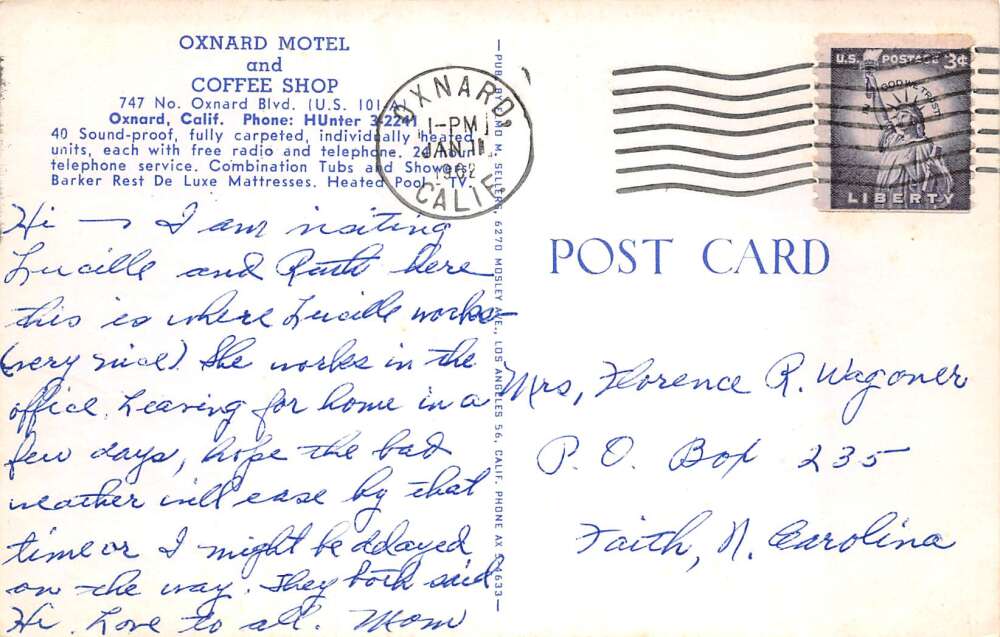 OXNARD MOTEL
and
COFFEE SHOP
747 No. Oxnard Blvd. (U.S. 101-A)
Oxnard, Calif. Phone: HUnter 3-2241
40 Sound-proof, fully carpeted, individually heated
units, each with free radio and telephone. 24 hour
telephone service. Combination Tubs and Showers.
Barker Rest De Luxe Mattresses. Heated Pool - TV.
Hi — I am visiting
Lucille and Ruth here
this is where Lucille works—
(very nice). She works in the
office. Leaving for home in a
few days, hope the bad
weather will ease by that
time or I might be delayed
on the way. They both said
Hi. Love to all. Mom
—PUB. BY M. SELLERS, 6270 MOSLEY AVE., LOS ANGELES 56, CALIF. PHONE AX 4633—
OXNARD
1-PM
JAN 11
1962
CALIF.
U.S. POSTAGE 3¢
IN GOD WE TRUST
LIBERTY
POST CARD
Mrs, Florence R. Wagoner
P. O. Box 235
Faith, N. Carolina